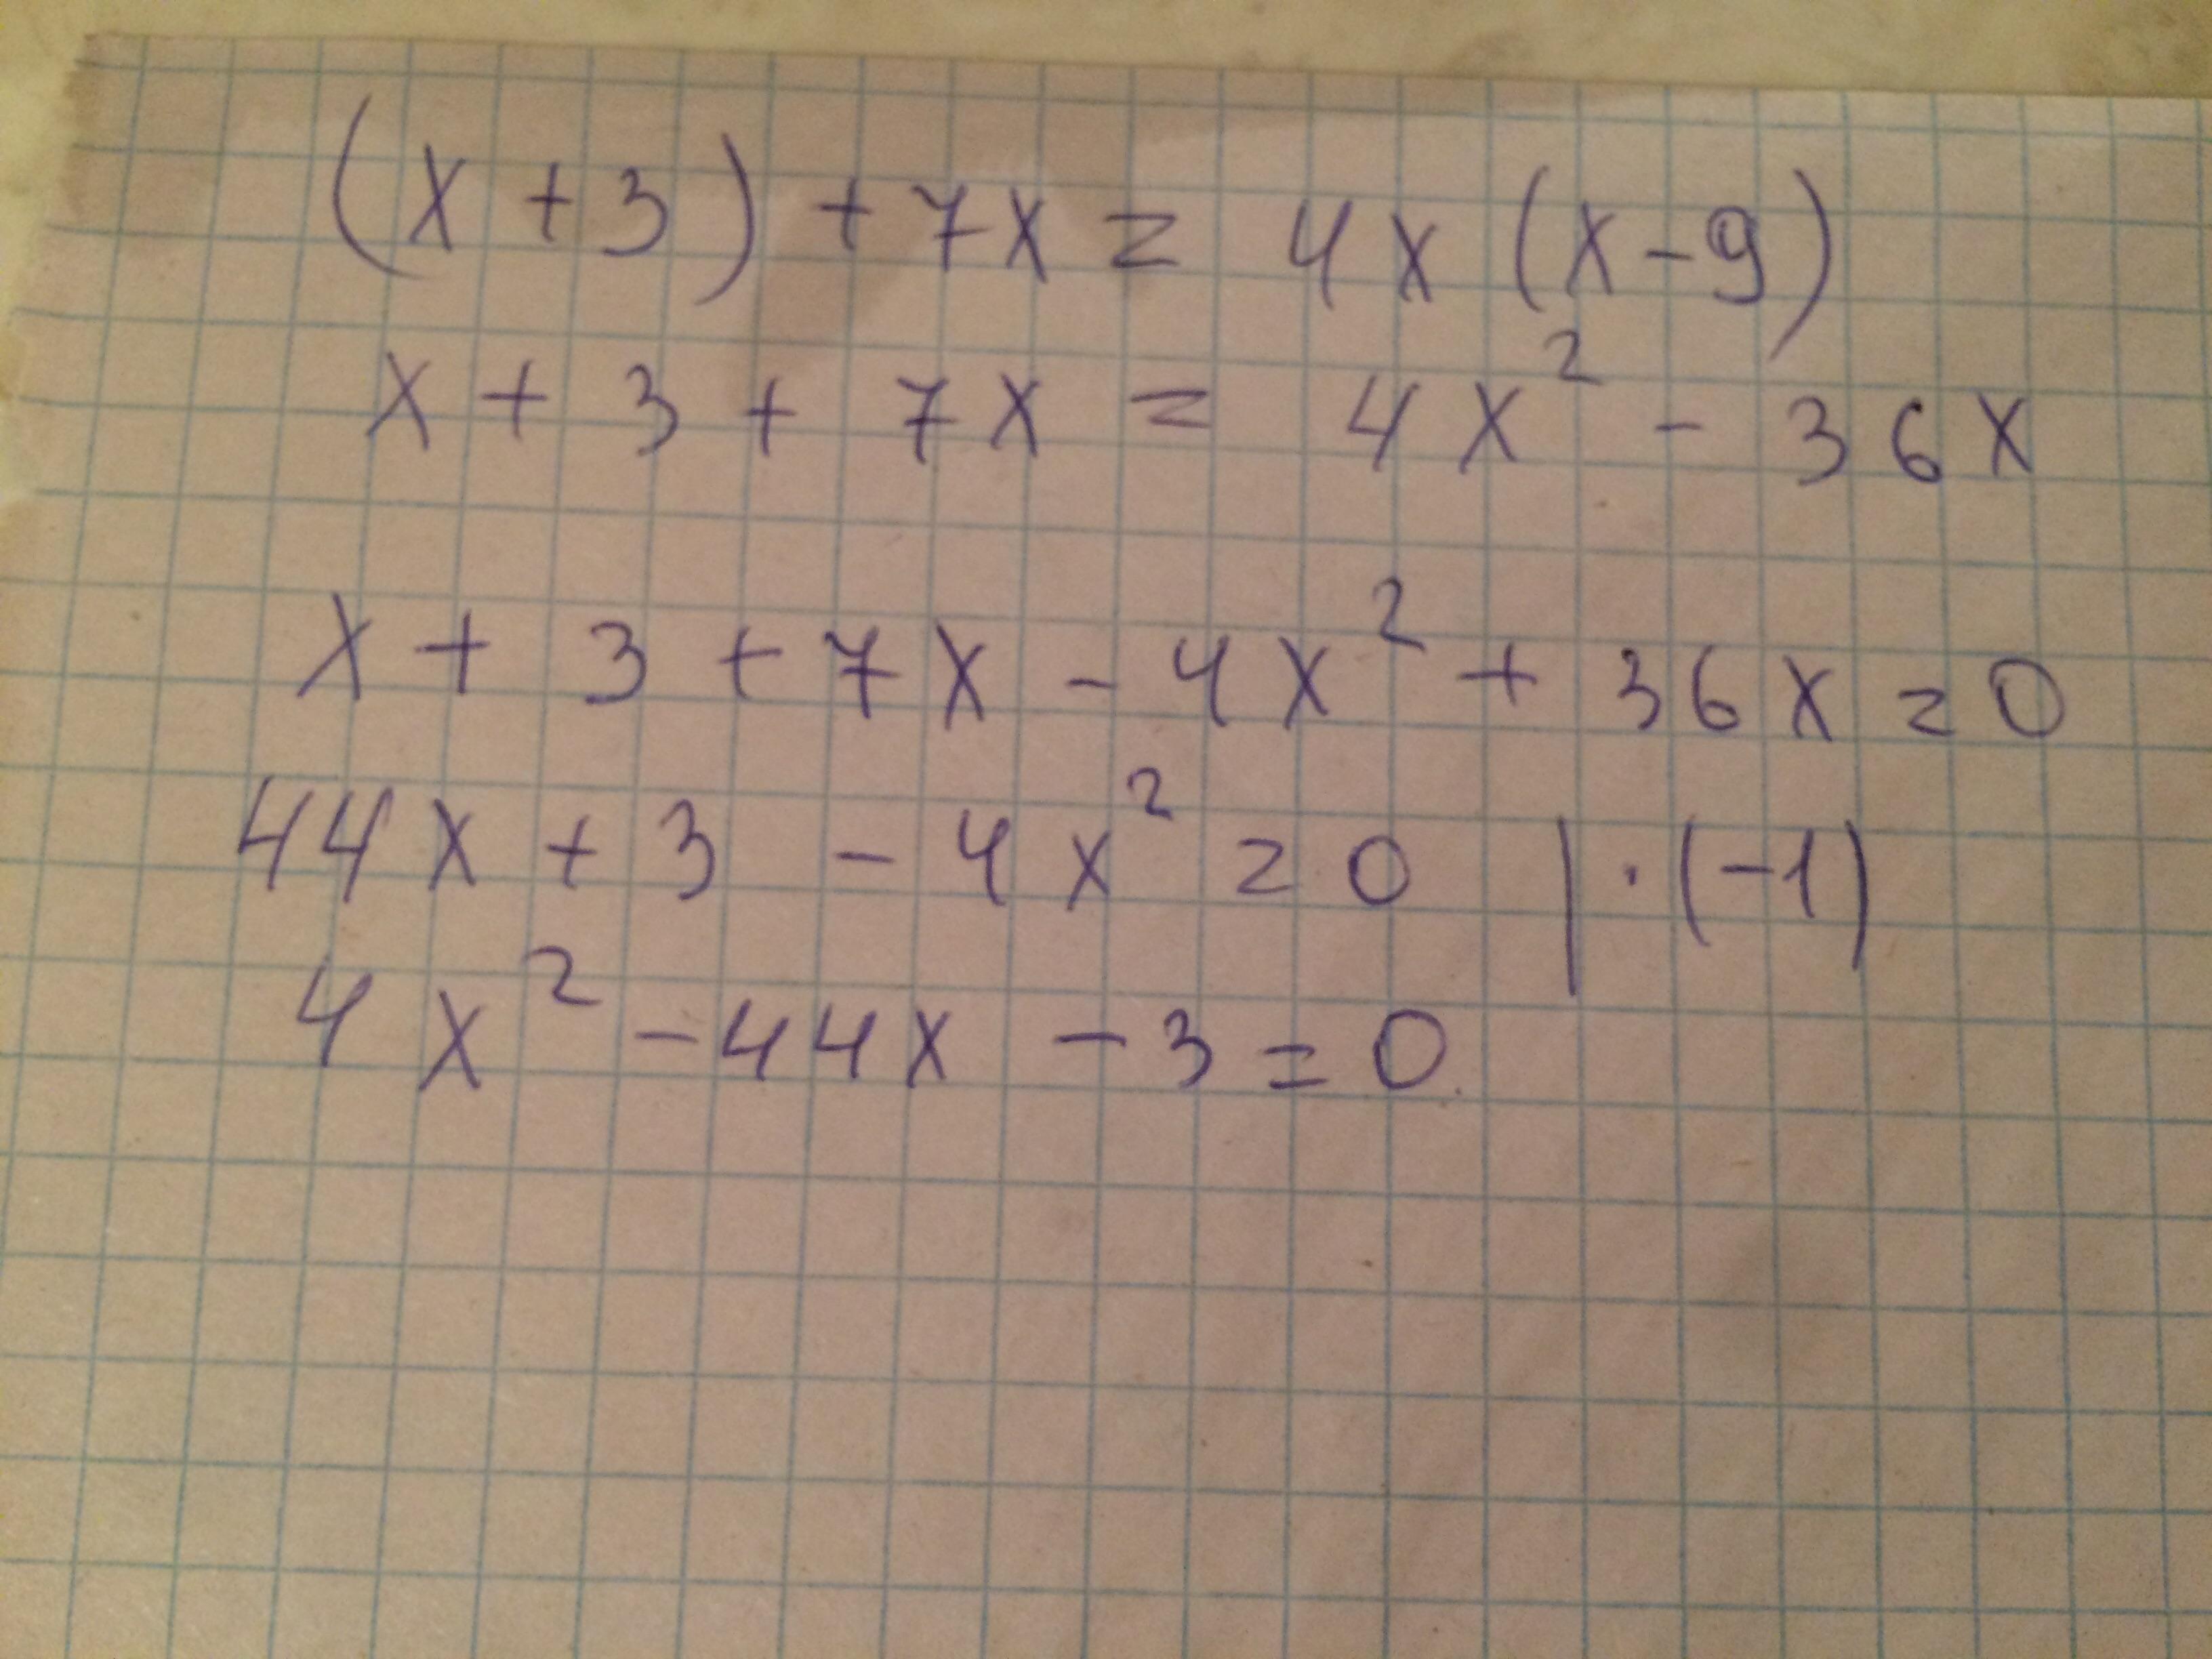 (x+3)+7x=4x(x-9)
x+3+7x=4x²-36x
x+3+7x-4x²+36x=0
44x+3-4x²=0 |·(-1)
4x²-44x-3=0